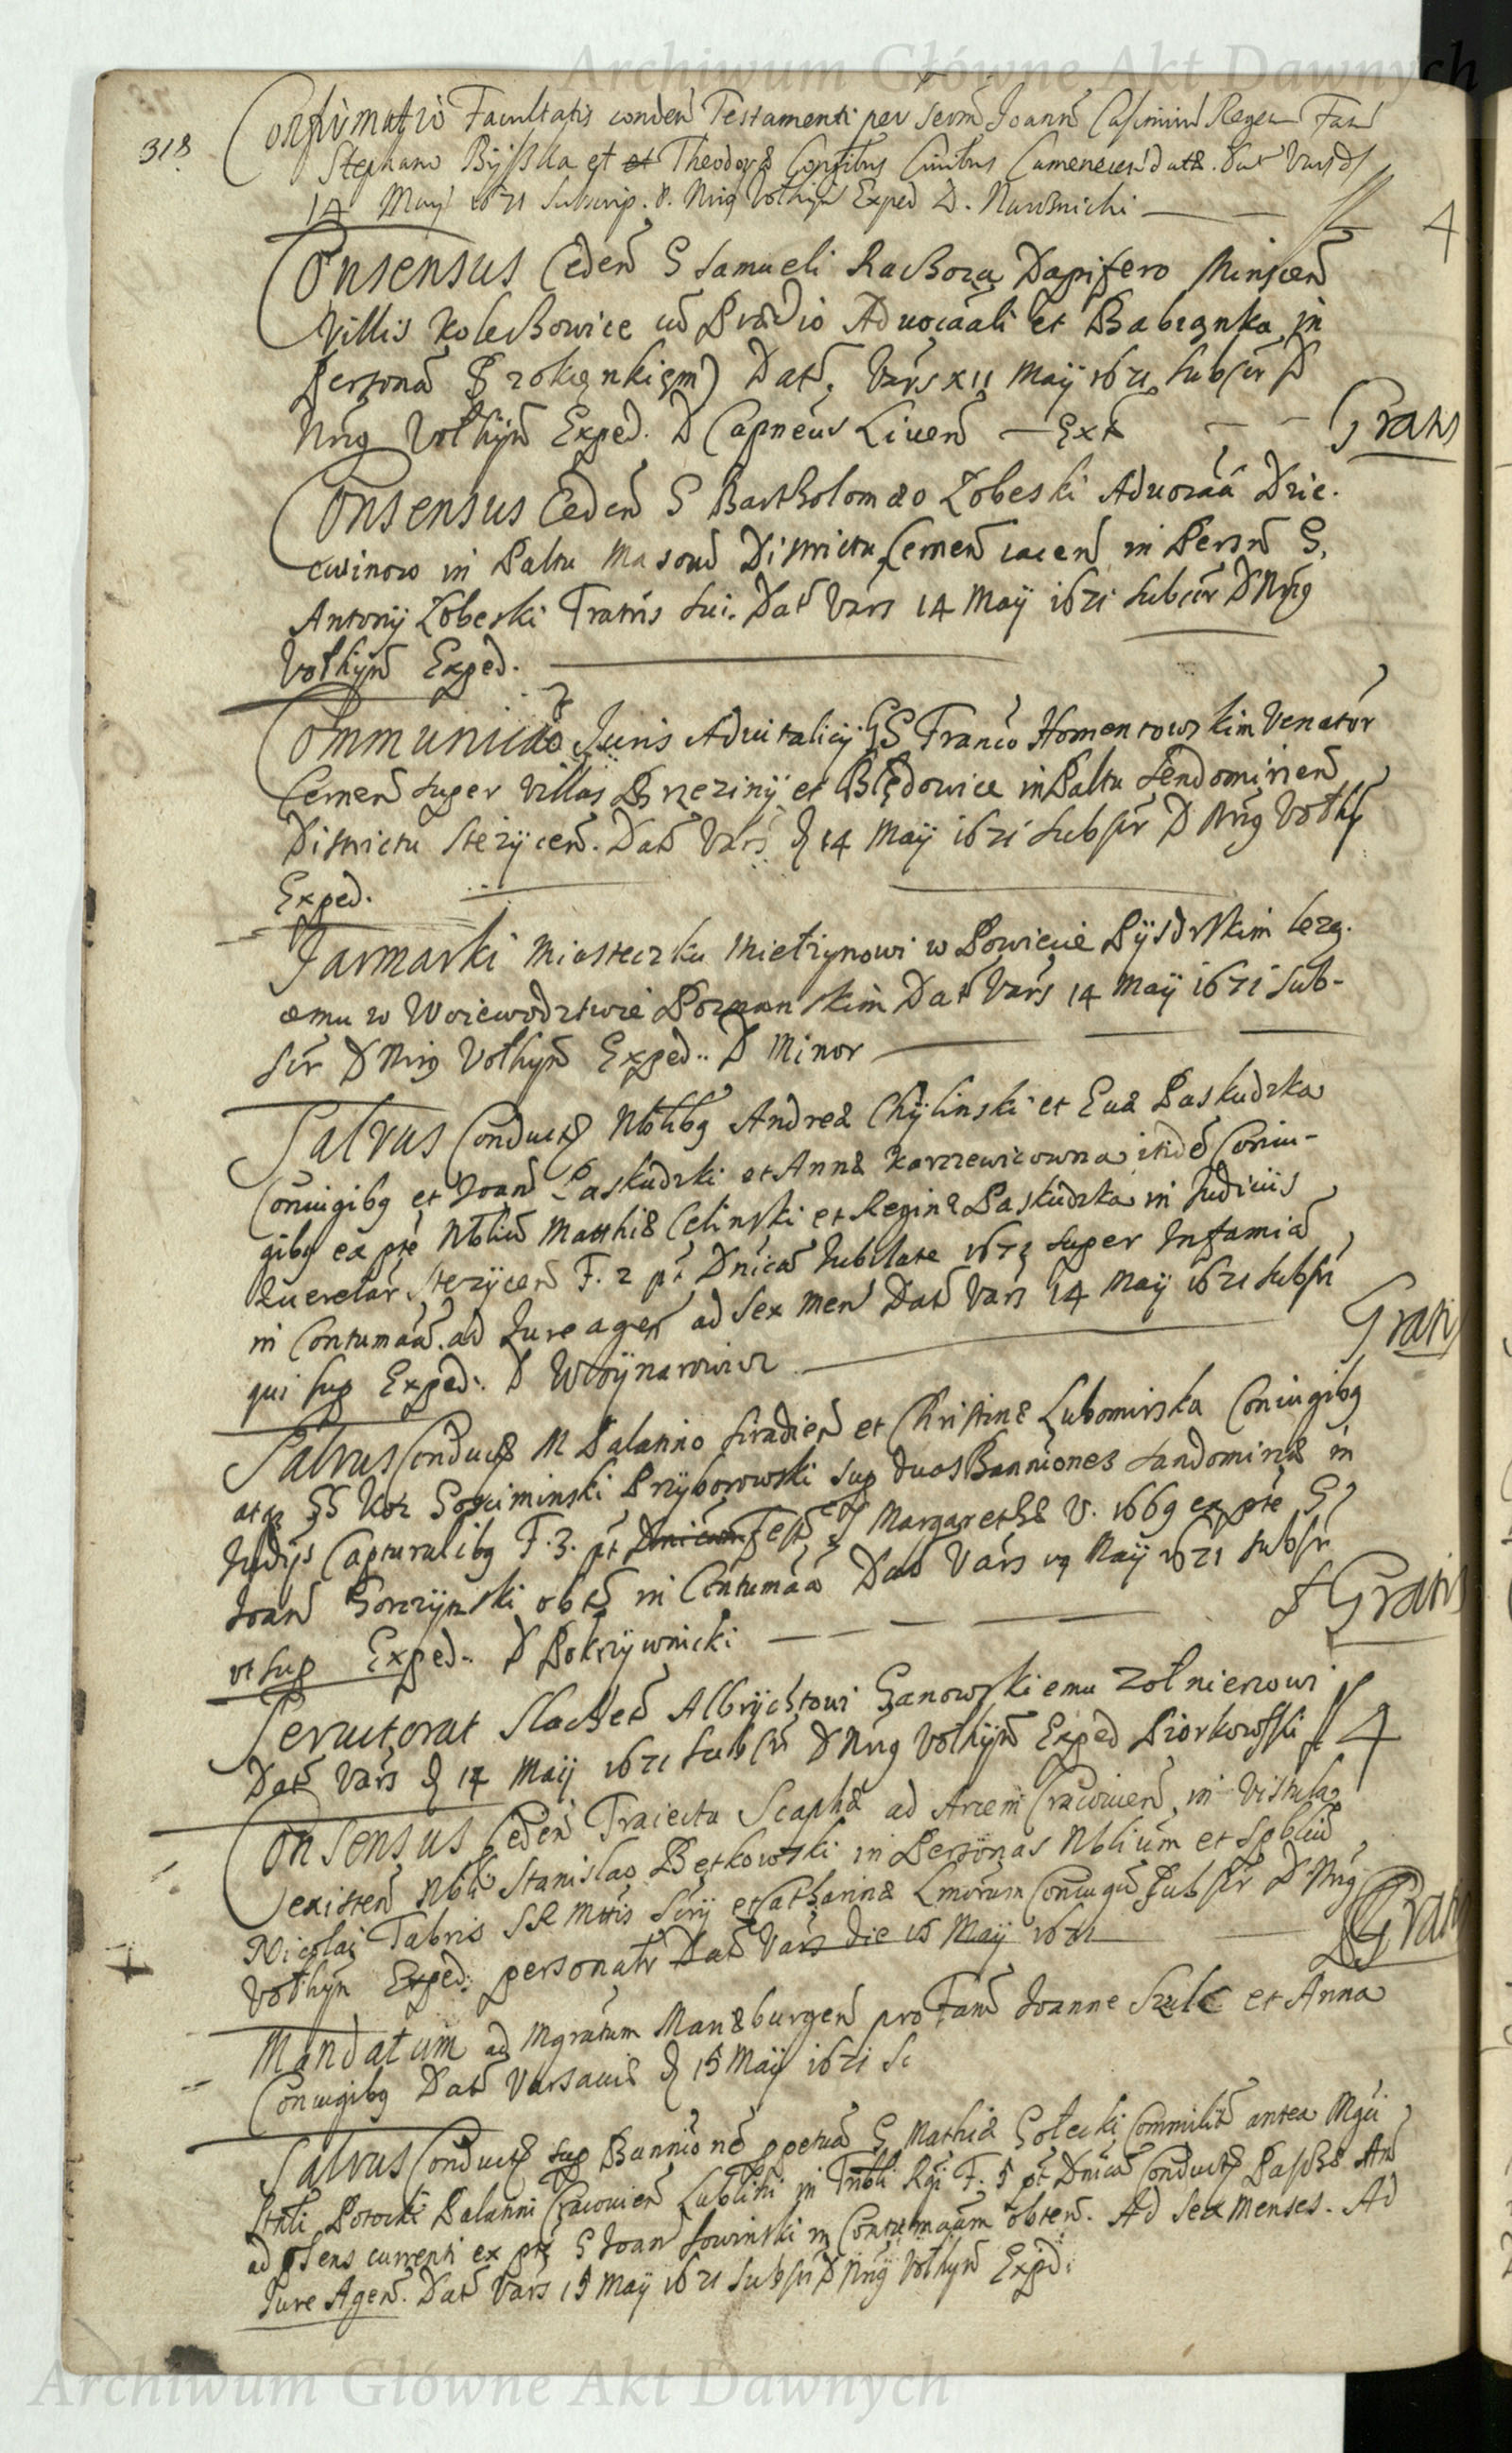 Archiwum Główne Akt Dawnych
318.
Confirmatio Facultatis conden Testamenti per Serm Joann Casimirū Regem Fam
Stephano et et Theodora Civibus Camenecen datæ. Dat Vars d
14 Maij 1671 Subscrip. D. Nrig Vołhyn Exped D.
4
Consensus Ceden G Samueli Dapifero Minscen
Villis cū Prædio Advocaāli et Babianka in
Personā Dat. Vars XII Maij 1671 Subscr D
Nrig Vołhyn Exped. D Capneus Liven — Ext
Gratis
Consensus Ceden G Bartholomæo Zobeski Advocaā Drie-
cwinow in Paltu Masov Districtu Cernen iacen in Persn G.
Antonij Zobeski Fratris sui. Dat Vars 14 Maij 1671 Subscr D Nrig
Vołhyn Exped.
Communicao Juris Advitalicij GS Franco Homentowskim Venator
Cernen super Villas Brzeziny et Błędowice in Paltu Sendomirien
Districtu Stezycen. Dat Vars D 14 Maij 1671 Subscr D Nrig Vołhy
Exped.
Jarmarki Miasteczku Mietzynowi w Powiecie Pyzdrskim leżą-
cemu w Woiewodztwie Poznanskim Dat Vars 14 Maij 1671 Sub-
scr D Nrig Vołhyn Exped.. D Minor
Salvus Conductq Nbłibq Andreæ Chylinski et Evæ Paskudzka
Coniugibq et Joan Paskudzki et Annæ Karczewicowna itidē Coniu-
gibq ex pte Nbłiū Matthiæ Celinski et Reginæ Paskudzka in Judiciis
Querelar Stezycen F. 2 pt Dnicā Jubilate 1671 super Infamiā
in Contumaā. ad Jure agen ad Sex Men Dat Vars 14 Maij 1671 Subscr
qui sup Exped. D Woynarowicz
Gratis
Salvus Conductq M Palatino Siradien et Christinæ Lubomirska Coniugibq
atq GS Kot Gosciminski Przyborowski sup duas Banniones Sandomiriæ in
Judijs Capturalibq F. 3. pt Dnicam Fest S Margarethæ V. 1669 ex pte G
Joan Gorczynski obten in Contumaā Dat Vars 14 Maij 1671 Subscr
ut sup Exped.. D Pokrzywnicki
Gratis
Servitorat Slachet Albrychtowi Ganowskiemu Zołnierzowi
Dat Vars D 14 Maij 1671 Subscr D Nrig Vołhyn Exped Piorkowski
4
Consensus Ceden Traiectu Scaphæ ad Arcem Cracovien in Vistula
existen Nbłi Stanislao Bętkowski in Personas Nbłium et Spbłiū
Nicolai Fabris SR Mttis Serij et Catharinæ Lmorum Coniugū Subscr D Nrig
Vołhyn Exped. personatr Dat Vars die 15 Maij 1671
Gratis
Mandatum ad Mgratum Marieburgen pro Fam Joanne Szulc et Anna
Coniugibq Dat Varsaviæ D 15 Maij 1671 Sc
Salvus Conductq sup Bannionē ppetuā G Mathiæ Gołecki Commilit antea Mgci
Potocki Palatini Cracovien Lublini in Tribłi Rgi F. 5 pt Dnicā Conductq Paschæ An
ad psens currenti ex pte G Joan Sowinski in Contumaam obten. Ad sex menses. Ad
Jure Agen. Dat Vars 15 Maij 1671 Subscr D Nrig Vołhyn Exped.
Archiwum Główne Akt Dawnych